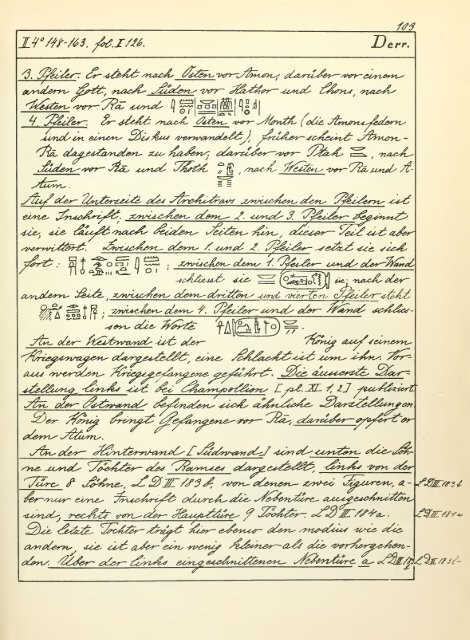 103
II 4° 148-163. fol. I 126.
Derr.
3. Pfeiler. Er steht nach Osten vor Amon, darüber vor einem
andern Gott, nach Süden vor Hathor und Chons, nach
Westen vor Rā und
4. Pfeiler. Er steht nach Osten vor Month (die Amonsfedern
sind in einen Diskus verwandelt), früher scheint Amon-
Rā dagestanden zu haben, darüber vor Ptah, nach
Süden vor Rā und Thoth, nach Westen vor Rā und A-
tum.
Auf der Unterseite des Architravs zwischen den Pfeilern ist
eine Inschrift, zwischen dem 2. und 3. Pfeiler beginnt
sie, sie läuft nach beiden Seiten hin, dieser Teil ist aber
verwittert. Zwischen dem 1. und 2. Pfeiler setzt sie sich
fort: ; zwischen dem 1. Pfeiler und der Wand
schliesst sie ; nach der
andern Seite, zwischen dem dritten und vierten Pfeiler steht
; zwischen dem 4. Pfeiler und der Wand schlies-
sen die Worte
An der Westwand ist der König auf seinem
Kriegswagen dargestellt, eine Schlacht ist um ihn. Vor-
aus werden Kriegsgefangene geführt. Die äusserste Dar-
stellung links ist bei Champollion [pl. XI. 1, 2] publiziert.
An der Ostwand befinden sich ähnliche Darstellungen.
Der König bringt Gefangene vor Rā, darüber opfert er
dem Atum.
An der Hinterwand [Südwand] sind unten die Söh-
ne und Töchter des Ramses dargestellt, links von der
Türe 8 Söhne, LD III 183b, von denen zwei Figuren, a-
LD III 183b
ber nur eine Inschrift durch die Nebentüre ausgeschnitten
sind, rechts von der Haupttüre 9 Töchter. LD III 184a.
LD III 184a
Die letzte Tochter trägt hier ebenso den modius wie die
andern, sie ist aber ein wenig kleiner als die vorhergehen-
den. Über der links eingeschnittenen Nebentüre a LD III
LD III 183b